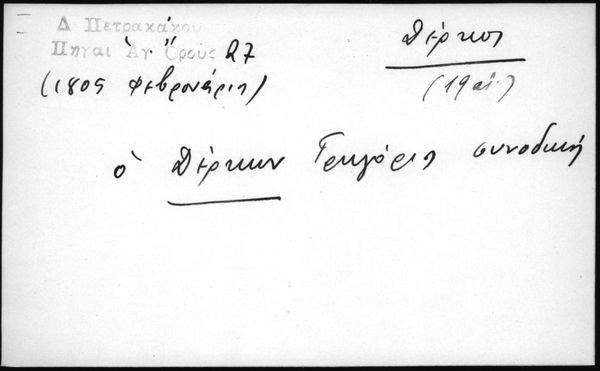 Δ Πετρακάκου
Πηγαί Ἁγ. Ὄρους 27
(1805 Φεβρουάριος)
Δέρκοι
(19 αἰ.)
ὁ Δέρκων Γρηγόριος συνοδική